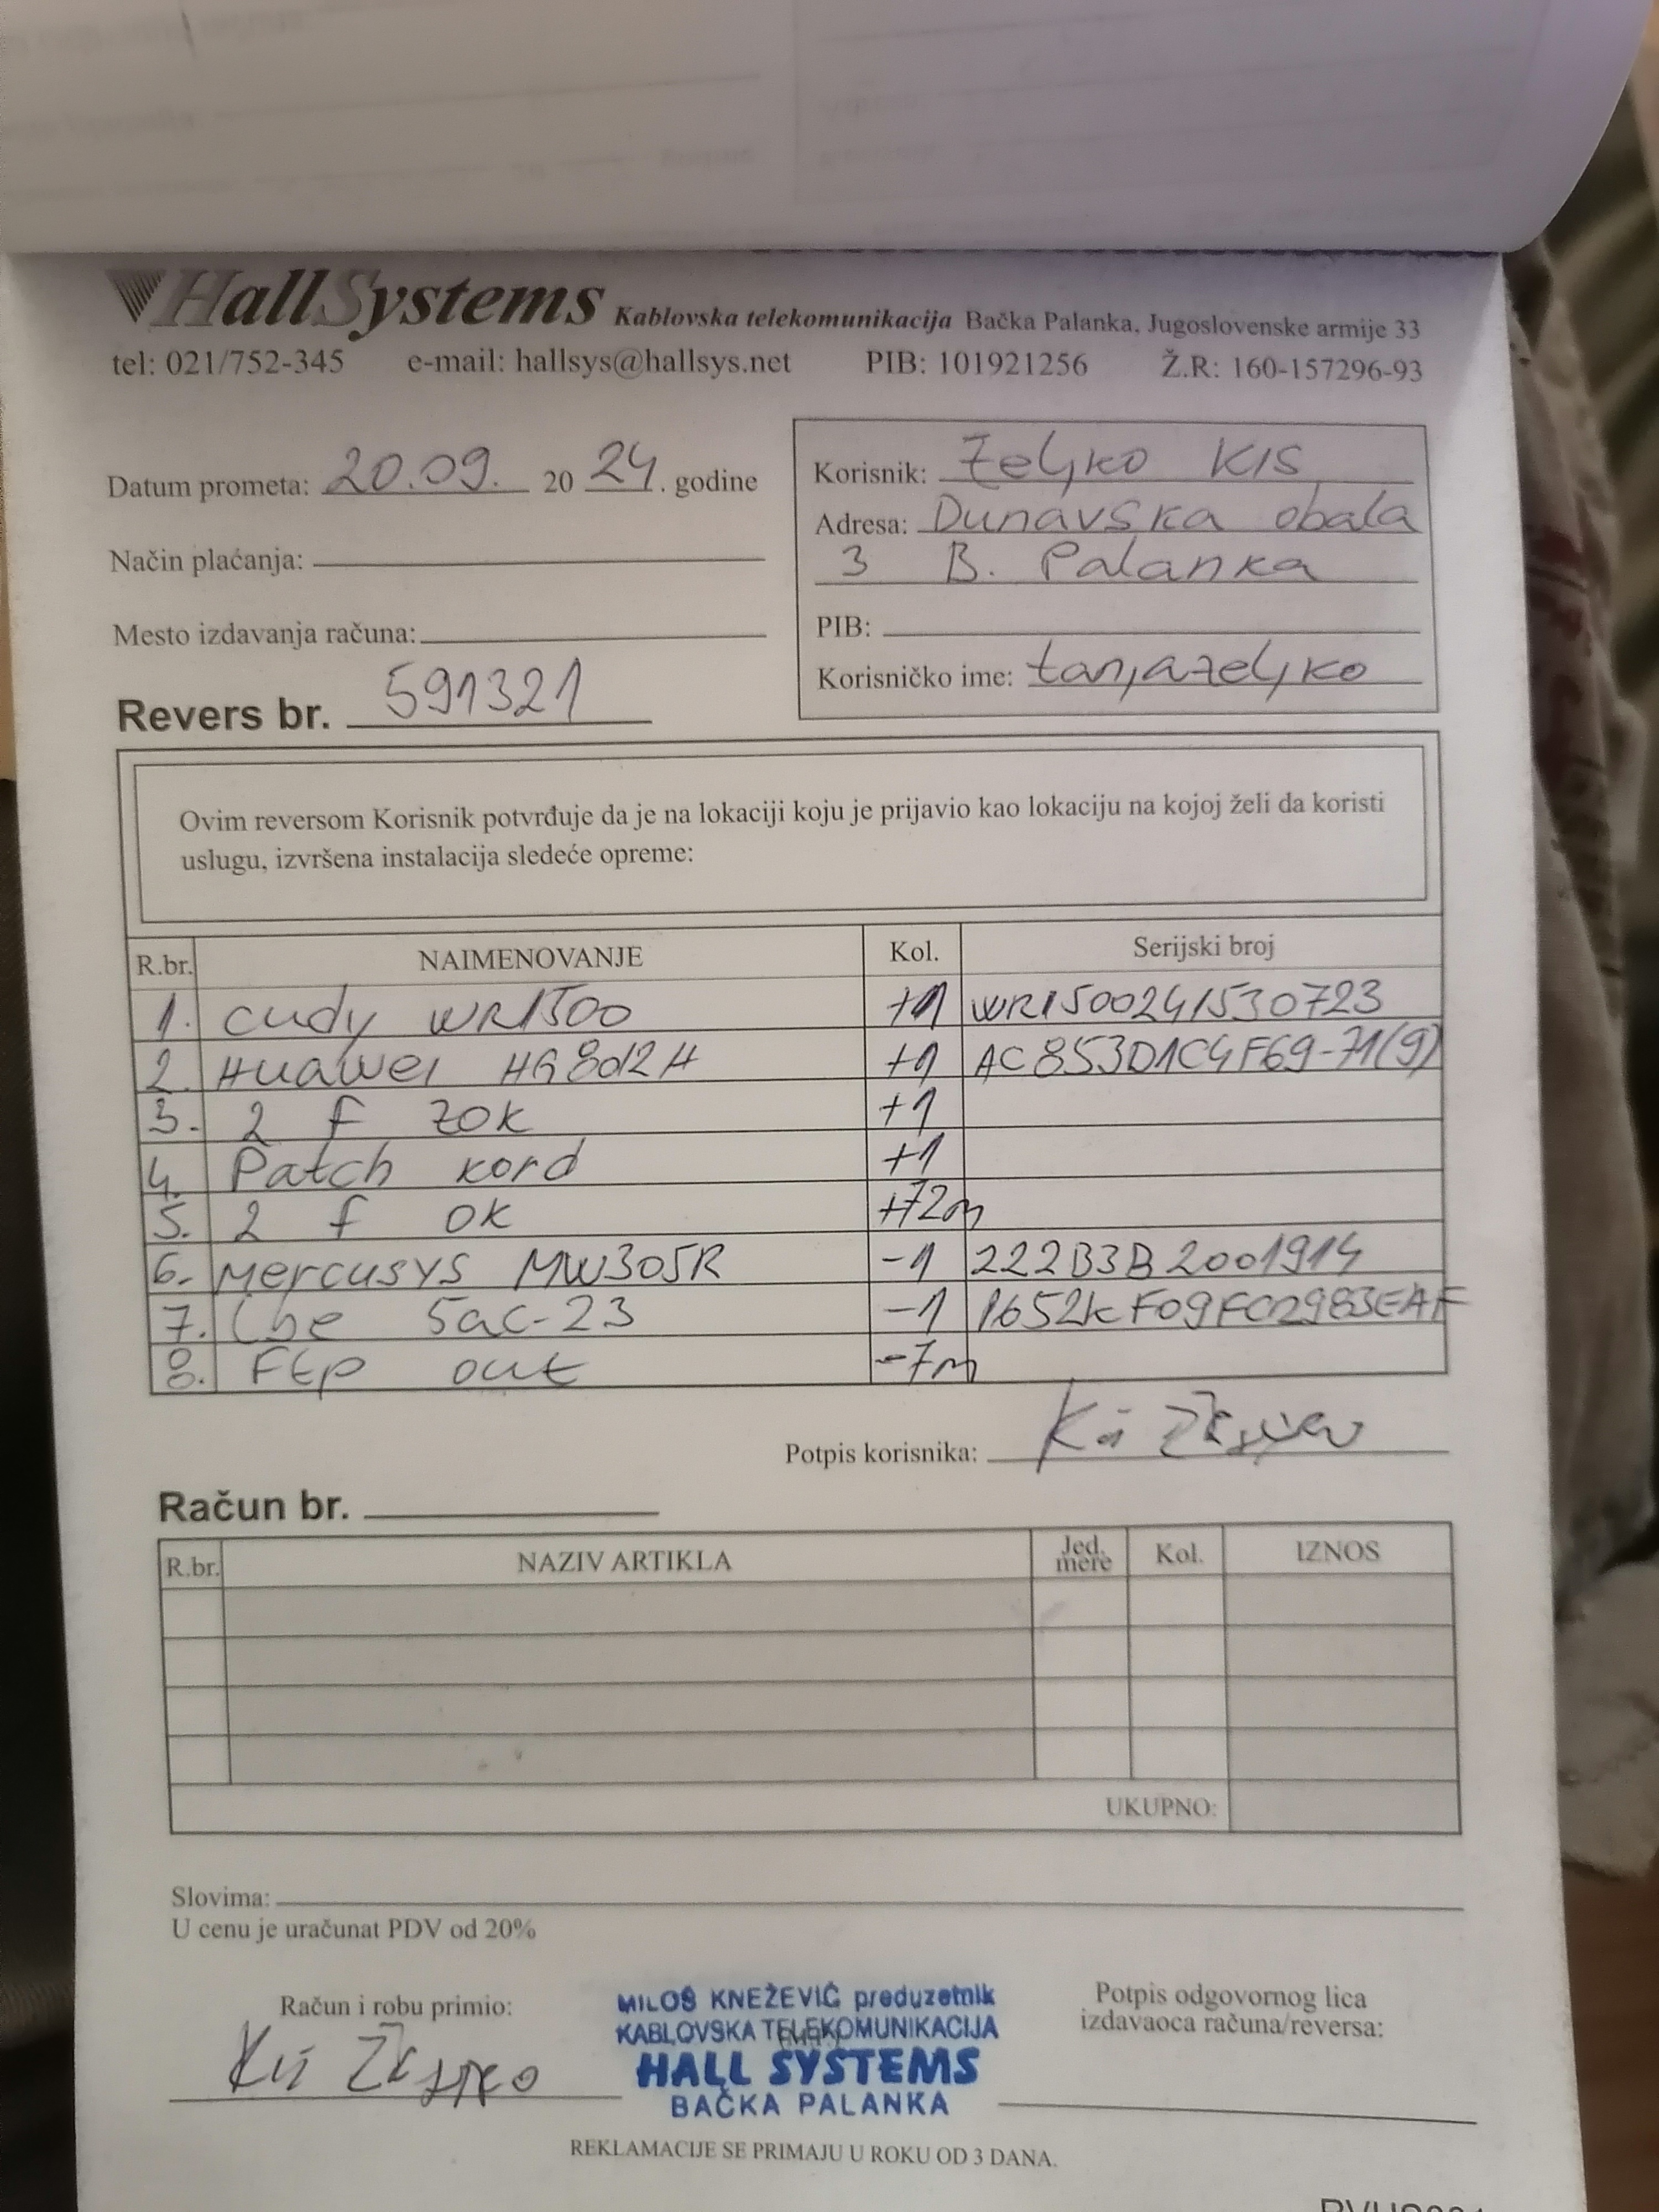 HallSystems Kablovska telekomunikacija Bačka Palanka, Jugoslovenske armije 33
tel: 021/752-345 e-mail: hallsys@hallsys.net PIB: 101921256 Ž.R: 160-157296-93
Datum prometa: 20.09. 20 24. godine
Način plaćanja:
Mesto izdavanja računa:
Revers br. 591321
Korisnik: Zeljko Kis
Adresa: Dunavska obala
3 B. Palanka
PIB:
Korisničko ime: tanjazeljko
Ovim reversom Korisnik potvrđuje da je na lokaciji koju je prijavio kao lokaciju na kojoj želi da koristi
uslugu, izvršena instalacija sledeće opreme:
R.br. NAIMENOVANJE Kol. Serijski broj
1. Cudy WR1500 +1 WR1500241530723
2. Huawei HG8012H +1 AC853D1C4F69-71(9)
3. 2 f ZOK +1
4. Patch kord +1
5. 2 f OK +72m
6. Mercusys MW305R -1 222B3B2001914
7. Lbe 5ac-23 -1 1652KF09FC2983EAF
8. Ftp out -7m
Potpis korisnika:
Račun br.
R.br. NAZIV ARTIKLA Jed. mere Kol. IZNOS
UKUPNO:
Slovima:
U cenu je uračunat PDV od 20%
Račun i robu primio:
Kiš Željko
MILOŠ KNEŽEVIĆ preduzetnik
KABLOVSKA TELEKOMUNIKACIJA
HALL SYSTEMS
BAČKA PALANKA
Potpis odgovornog lica
izdavaoca računa/reversa:
REKLAMACIJE SE PRIMAJU U ROKU OD 3 DANA.